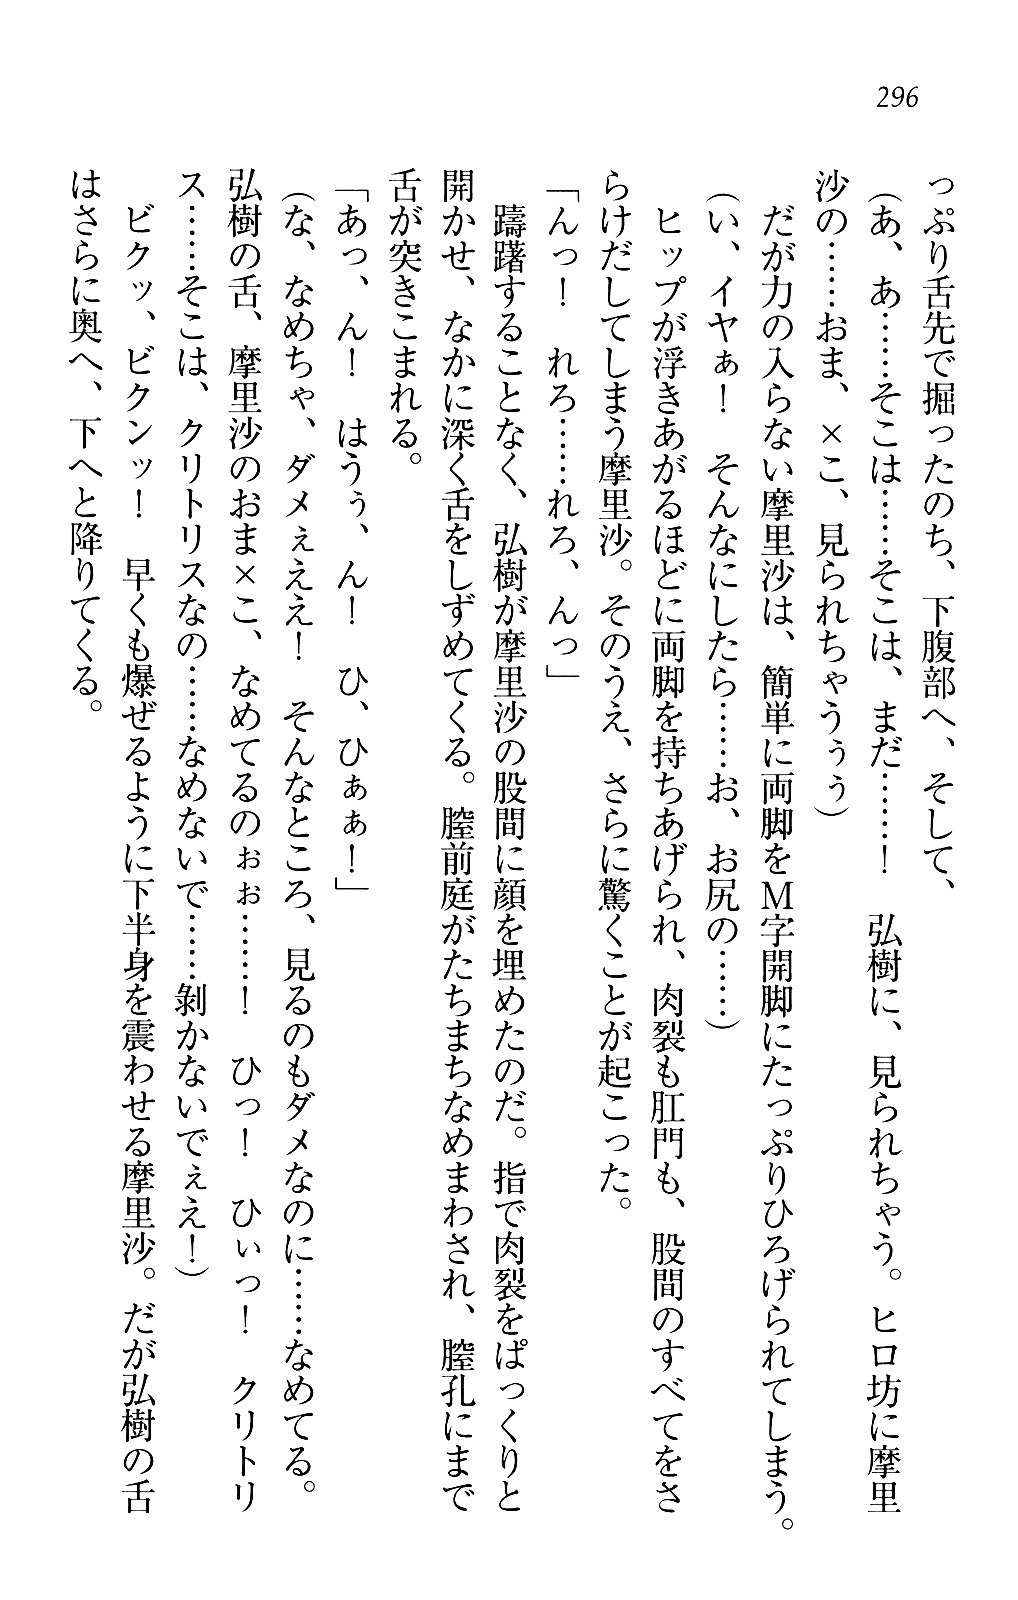 296
っぷり舌先で掘ったのち、下腹部へ、そして、
(あ、あ……そこは……そこは、まだ……！　弘樹に、見られちゃう。ヒロ坊に摩里
沙の……おま、×こ、見られちゃうぅぅ)
だが力の入らない摩里沙は、簡単に両脚をM字開脚にたっぷりひろげられてしまう。
(い、イヤぁ！　そんなにしたら……お、お尻の……)
ヒップが浮きあがるほどに両脚を持ちあげられ、肉裂も肛門も、股間のすべてをさ
らけだしてしまう摩里沙。そのうえ、さらに驚くことが起こった。
「んっ！　れろ……れろ、んっ」
躊躇することなく、弘樹が摩里沙の股間に顔を埋めたのだ。指で肉裂をぱっくりと
開かせ、なかに深く舌をしずめてくる。膣前庭がたちまちなめまわされ、膣孔にまで
舌が突きこまれる。
「あっ、ん！　はうぅ、ん！　ひ、ひぁぁ！」
(な、なめちゃ、ダメぇええ！　そんなところ、見るのもダメなのに……なめてる。
弘樹の舌、摩里沙のおま×こ、なめてるのぉぉ……！　ひっ！　ひぃっ！　クリトリ
ス……そこは、クリトリスなの……なめないで……剝かないでぇえ！)
ビクッ、ビクンッ！　早くも爆ぜるように下半身を震わせる摩里沙。だが弘樹の舌
はさらに奥へ、下へと降りてくる。